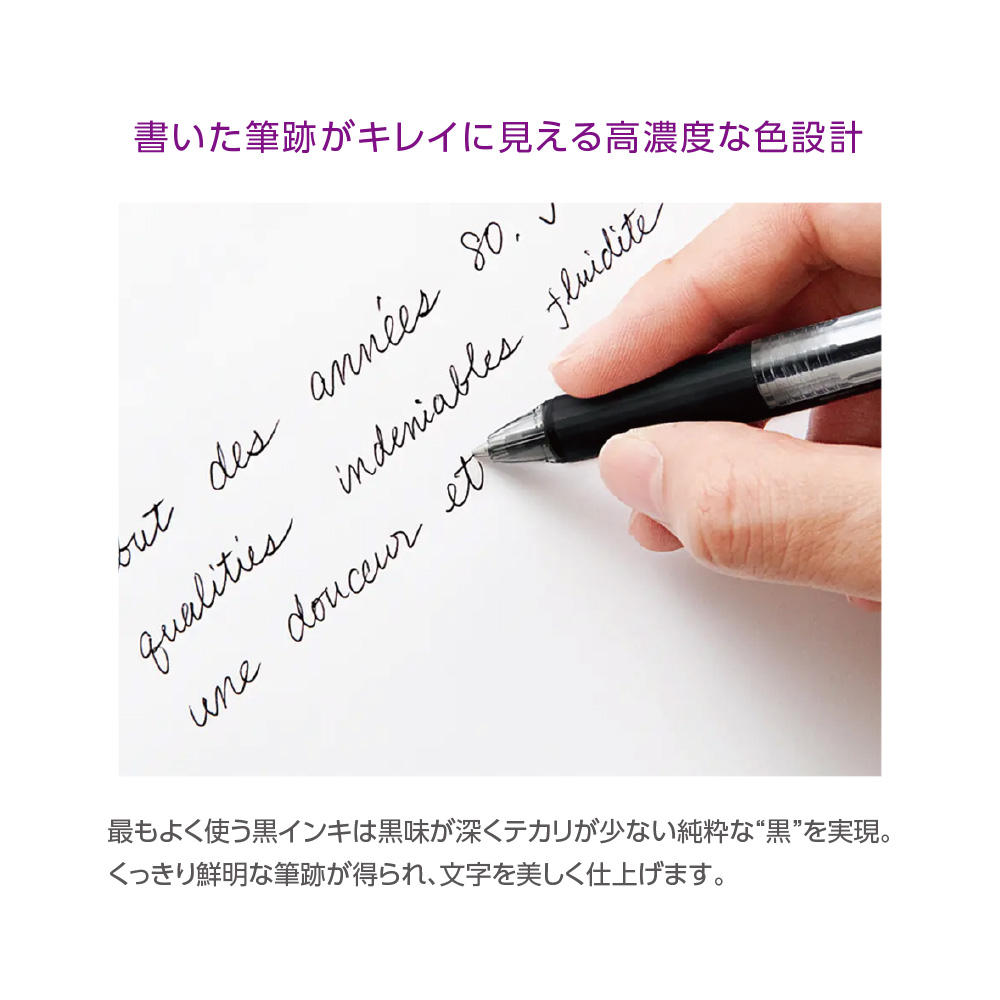 書いた筆跡がキレイに見える高濃度な色設計
but des années 80. v
qualities indeniables fluidite
une douceur et
最もよく使う黒インキは黒味が深くテカリが少ない純粋な“黒”を実現。
くっきり鮮明な筆跡が得られ、文字を美しく仕上げます。